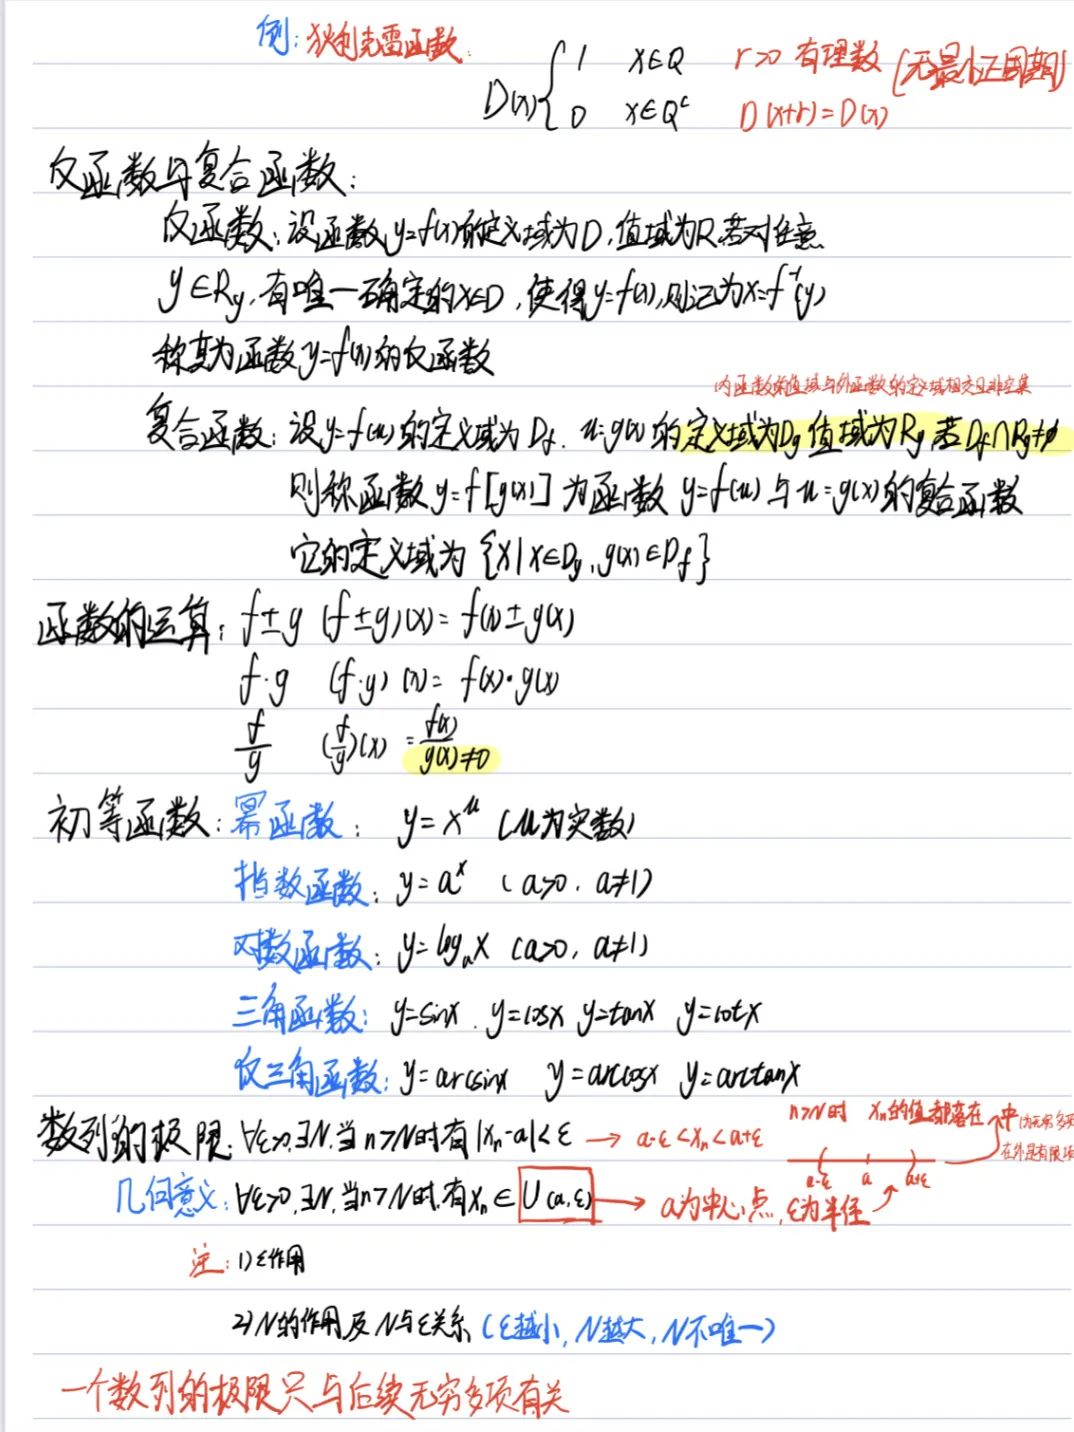 例：狄利克雷函数
D(x){ 1 x∈Q r>0 有理数 (无最小正周期)
0 x∈Qᶜ D(x+r)=D(x)
反函数与复合函数：
反函数：设函数y=f(x)的定义域为D，值域为R，若对任意
y∈Ry，有唯一确定的x∈D，使得y=f(x)，则记为x=f⁻¹(y)
称其为函数y=f(x)的反函数
内函数的值域与外函数的定义域相交且非空集
复合函数：设y=f(u)的定义域为Df，u=g(x)的定义域为Dg值域为Rg，若Df∩Rg≠∅
则称函数y=f[g(x)]为函数y=f(u)与u=g(x)的复合函数
它的定义域为{x|x∈Dg，g(x)∈Df}
函数的运算：f±g (f±g)(x)=f(x)±g(x)
f·g (f·g)(x)=f(x)·g(x)
f/g (f/g)(x)=f(x)/g(x)≠0
初等函数：幂函数：y=x^μ (μ为实数)
指数函数：y=aˣ (a>0，a≠1)
对数函数：y=logₐx (a>0，a≠1)
三角函数：y=sinx．y=cosx y=tanx y=cotx
反三角函数：y=arcsinx y=arccosx y=arctanx
n>N时 xₙ的值都落在 中
内无穷多项
在外是有限项
数列的极限：∀ε>0，∃N，当n>N时有|xₙ-a|<ε → a-ε<xₙ<a+ε
a-ε a a+ε
几何意义：∀ε>0，∃N，当n>N时，有xₙ∈U(a,ε) → a为中心点，ε为半径
注：1)ε作用
2)N的作用及N与ε关系 (ε越小，N越大，N不唯一)
一个数列的极限只与后续无穷多项有关